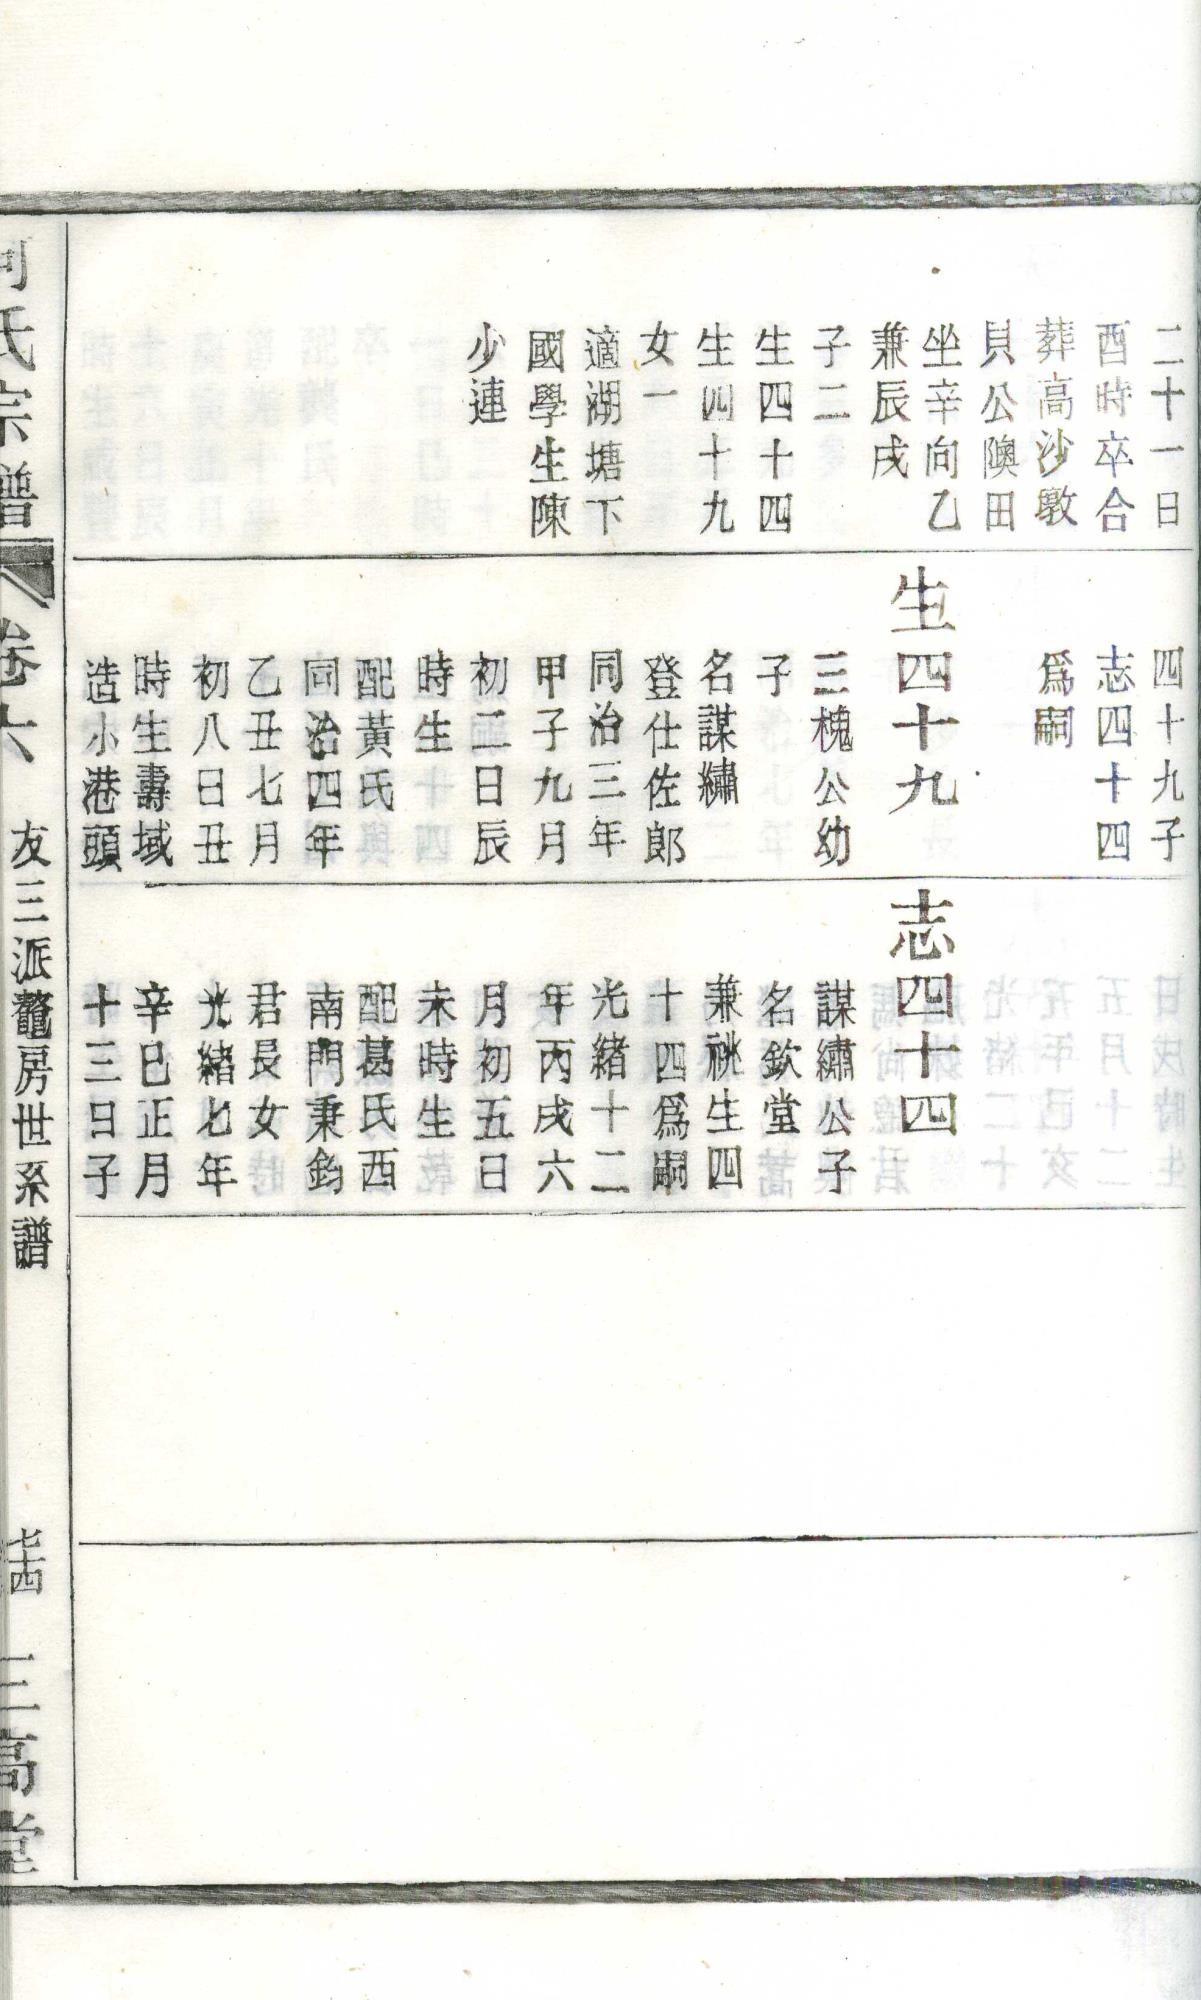 二十一日
酉時卒合
葬高沙墩
貝公隩田
坐辛向乙
兼辰戌
子二
生四十四
生四十九
女一
適湖塘下
國學生陳
少連
四十九子
志四十四
爲嗣
生四十九
三槐公幼
子
名謀繡
登仕佐郎
同治三年
甲子九月
初二日辰
時生
配黃氏
同治四年
乙丑七月
初八日丑
時生壽域
造小港頭
志四十四
謀繡公子
名欽堂
兼祧生四
十四爲嗣
光緒十二
年丙戌六
月初五日
未時生
配葛氏西
南門秉鈞
君長女
光緒七年
辛巳正月
十三日子
何氏宗譜
卷六
友三派鼇房世系譜
七十四
三高堂